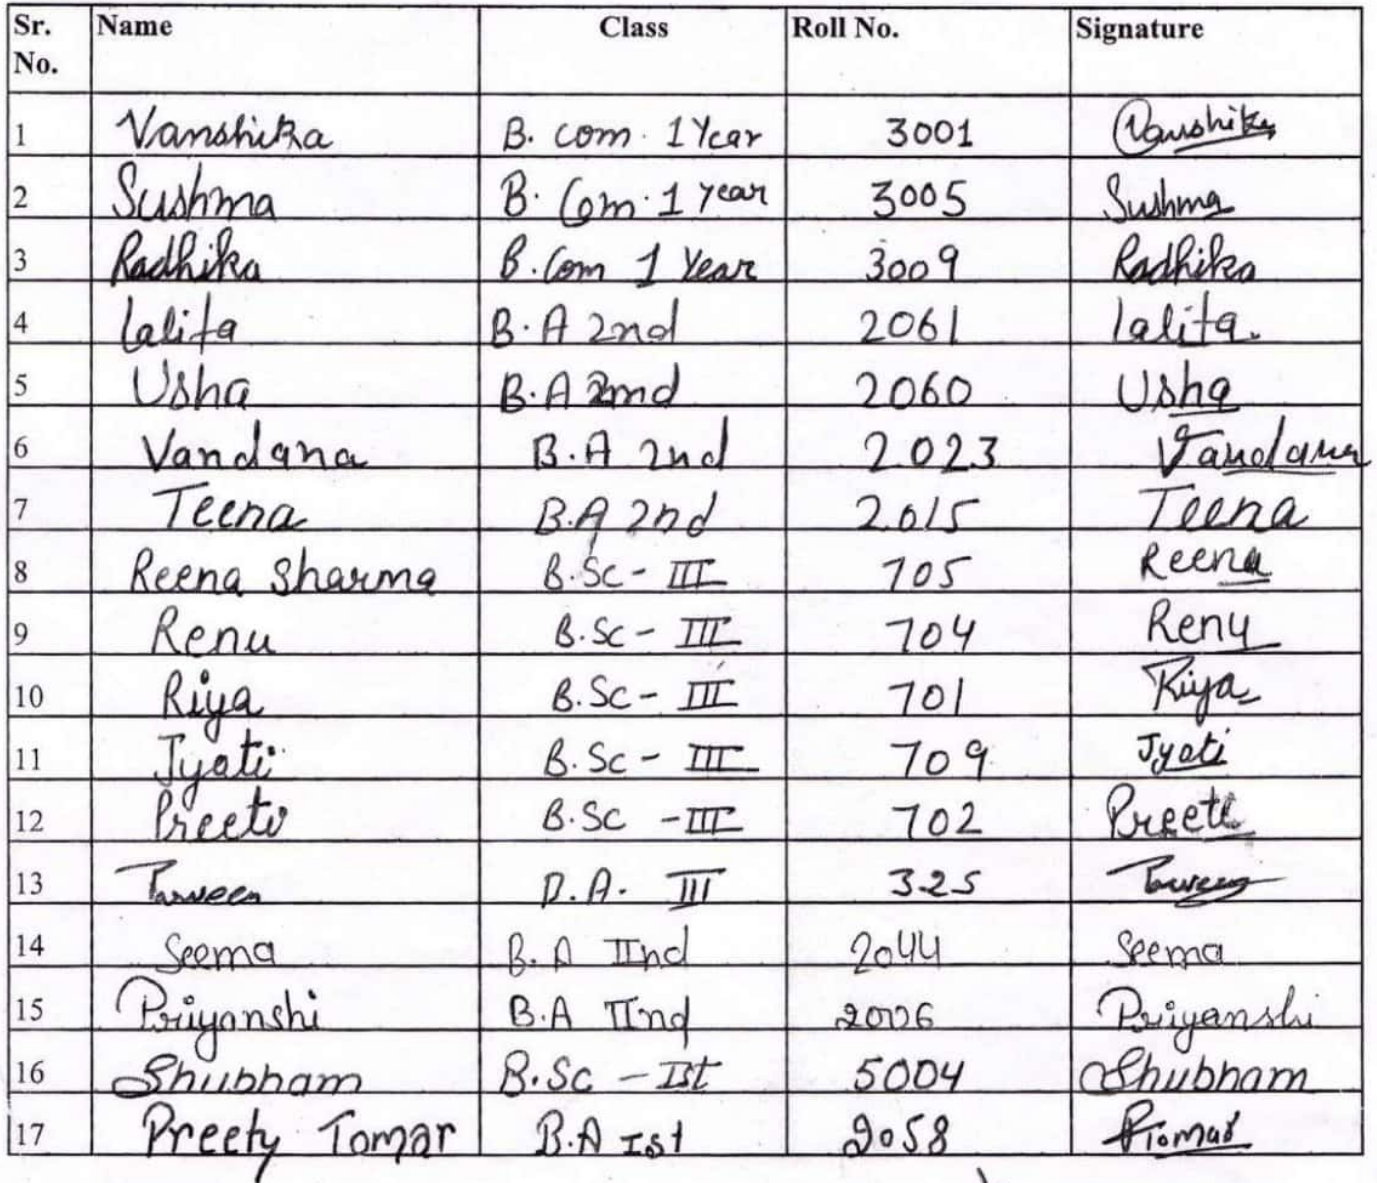 Sr. No. Name Class Roll No. Signature
1 Vanshika B. com. 1 Year 3001 Vanshika
2 Sushma B. Com. 1 year 3005 Sushma
3 Radhika B. Com 1 Year 3009 Radhika
4 Lalita B. A 2nd 2061 Lalita.
5 Usha B. A 2nd 2060 Usha
6 Vandana B.A 2nd 2023 Vandana
7 Teena B.A 2nd 2015 Teena
8 Reena Sharma B.Sc - III 705 Reena
9 Renu B.Sc - III 704 Renu
10 Riya B.Sc - III 701 Riya
11 Jyoti B.Sc - III 709 Jyoti
12 Preeti B.Sc - III 702 Preeti
13 Parveen B.A. III 325 Parveen
14 Seema B.A IInd 2044 Seema
15 Priyanshi B.A IInd 2006 Priyanshi
16 Shubham B.Sc - Ist 5004 Shubham
17 Preety Tomar B.A Ist 2058 PTomar